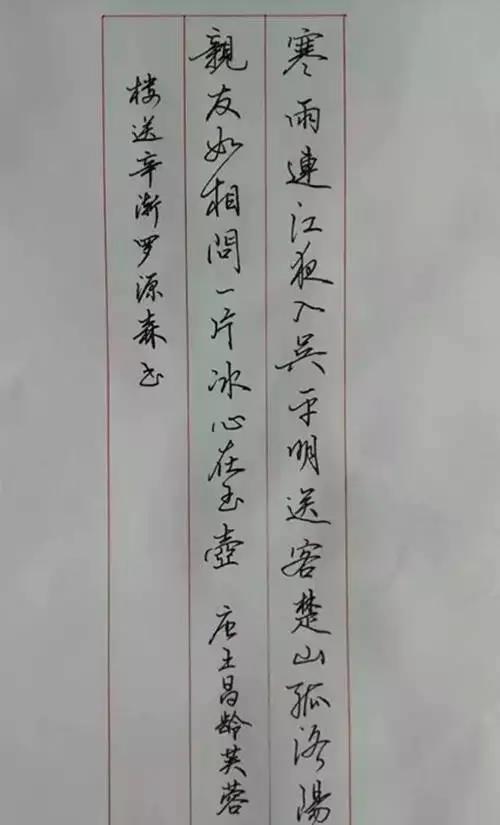 寒雨連江夜入吳平明送客楚山孤洛陽
親友如相問一片冰心在玉壺 唐王昌齡芙蓉
楼送辛渐罗源森书